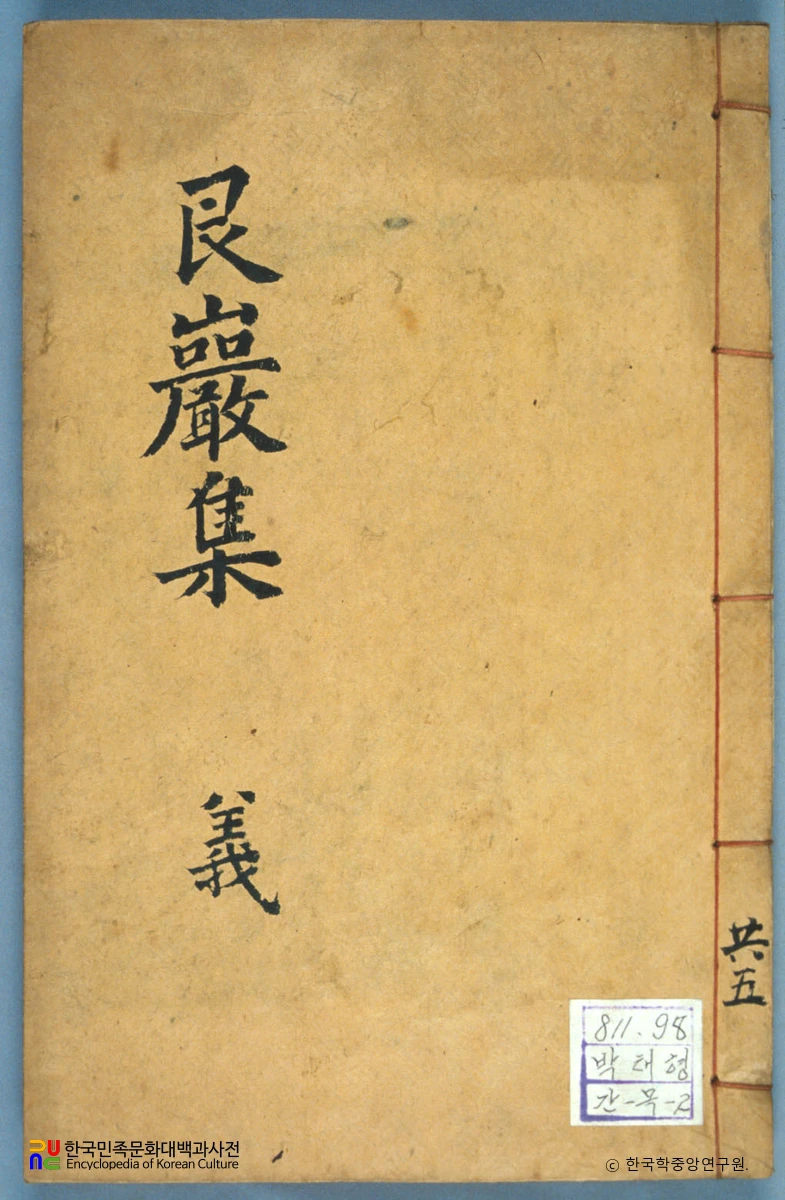 艮巖集
義
共五
811.98
박태형
간-목-2
한국민족문화대백과사전
Encyclopedia of Korean Culture
© 한국학중앙연구원.